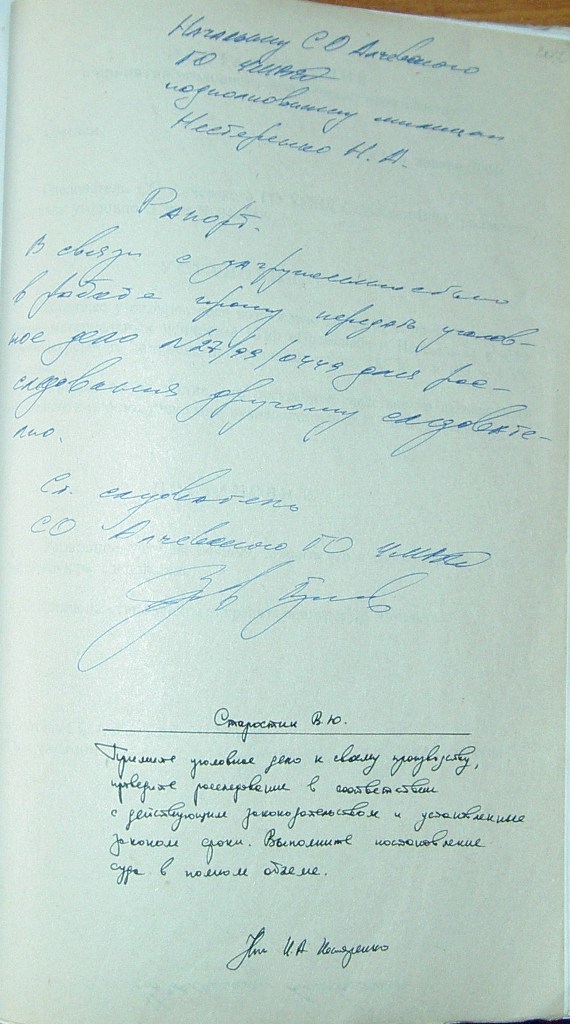 Начальнику СО Алчевского
ГО УМВД
подполковнику милиции
Нестеренко Н. А.
Рапорт.
В связи с загруженностью
в работе прошу передать уголов-
ное дело №27/99/0449 для рас-
следования другому следовате-
лю.
Ст. следователь
СО Алчевского ГО УМВД
Старостин В.Ю.
Примите уголовное дело к своему производству,
проведите расследование в соответствии
с действующим законодательством и установленные
законом сроки. Выполните постановление
суда в полном объеме.
Н.А. Нестеренко